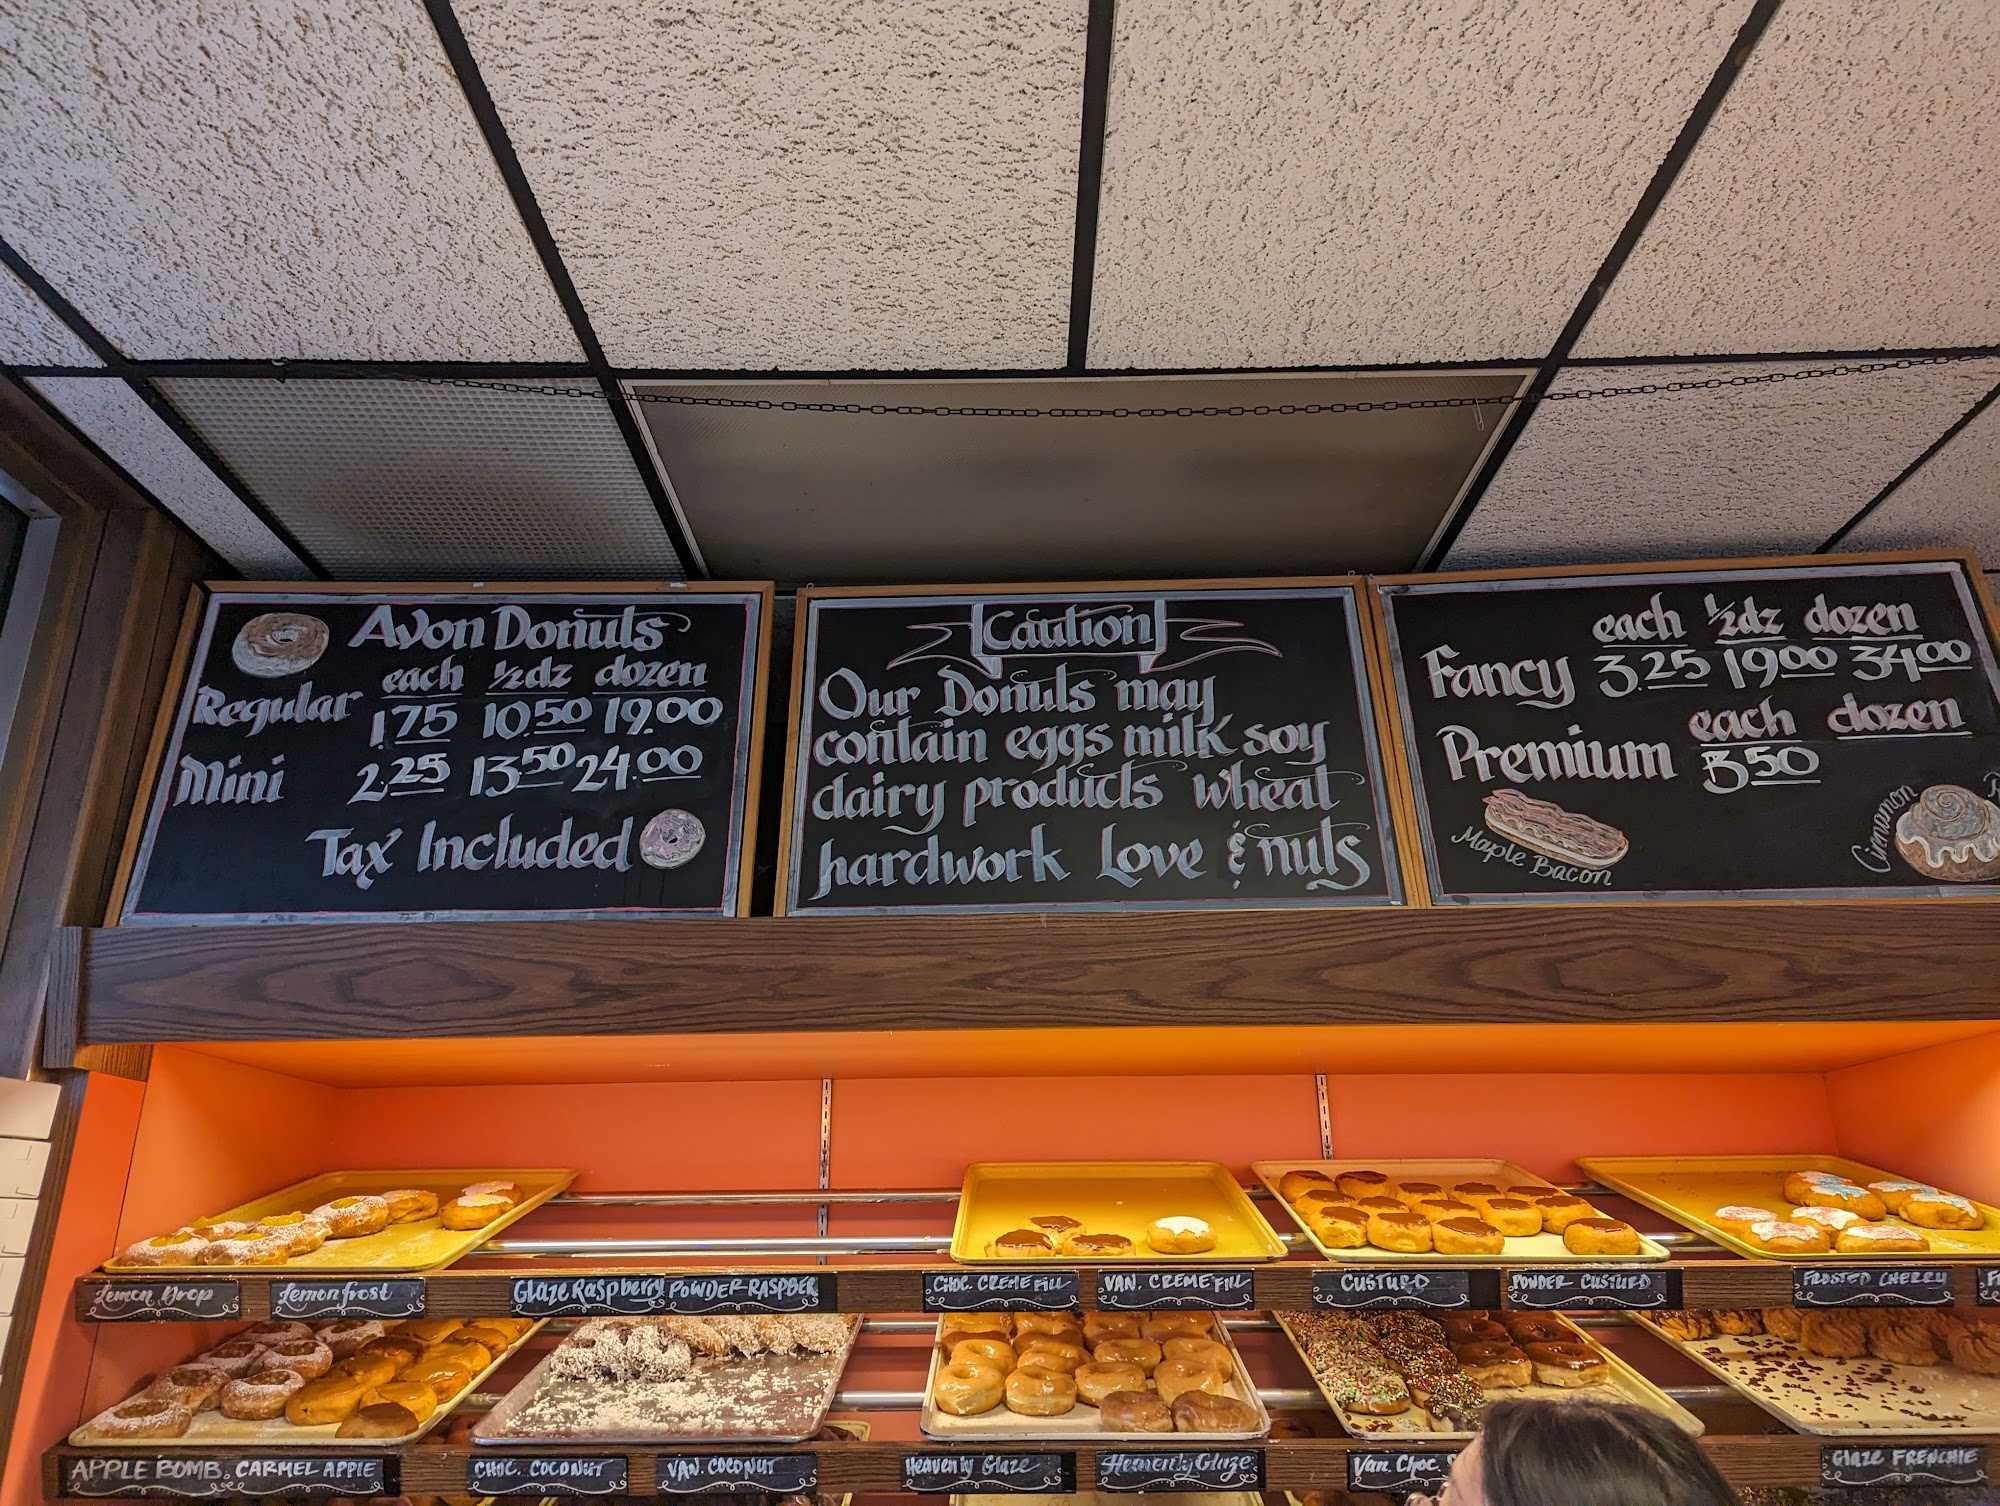 Avon Donuts
each ½dz dozen
Regular 1.75 10.50 19.00
Mini 2.25 13.50 24.00
Tax Included
Caution
Our Donuts may
contain eggs milk soy
dairy products wheat
hardwork Love & nuts
each ½dz dozen
Fancy 3.25 19.00 34.00
each dozen
Premium 3.50
Maple Bacon
Cinnamon
Lemon Drop
Lemonfrost
Glaze Raspberry
POWDER RASPBER
CHOC. CREME FILL
VAN. CREME FILL
CUSTURD
POWDER CUSTURD
FROSTED CHERRY
APPLE BOMB.
CARMEL APPIE
CHOC. COCONUT
VAN. COCONUT
Heavenly Glaze
Heavenly Glaze
Van. Choc.
Glaze FRENCHIE